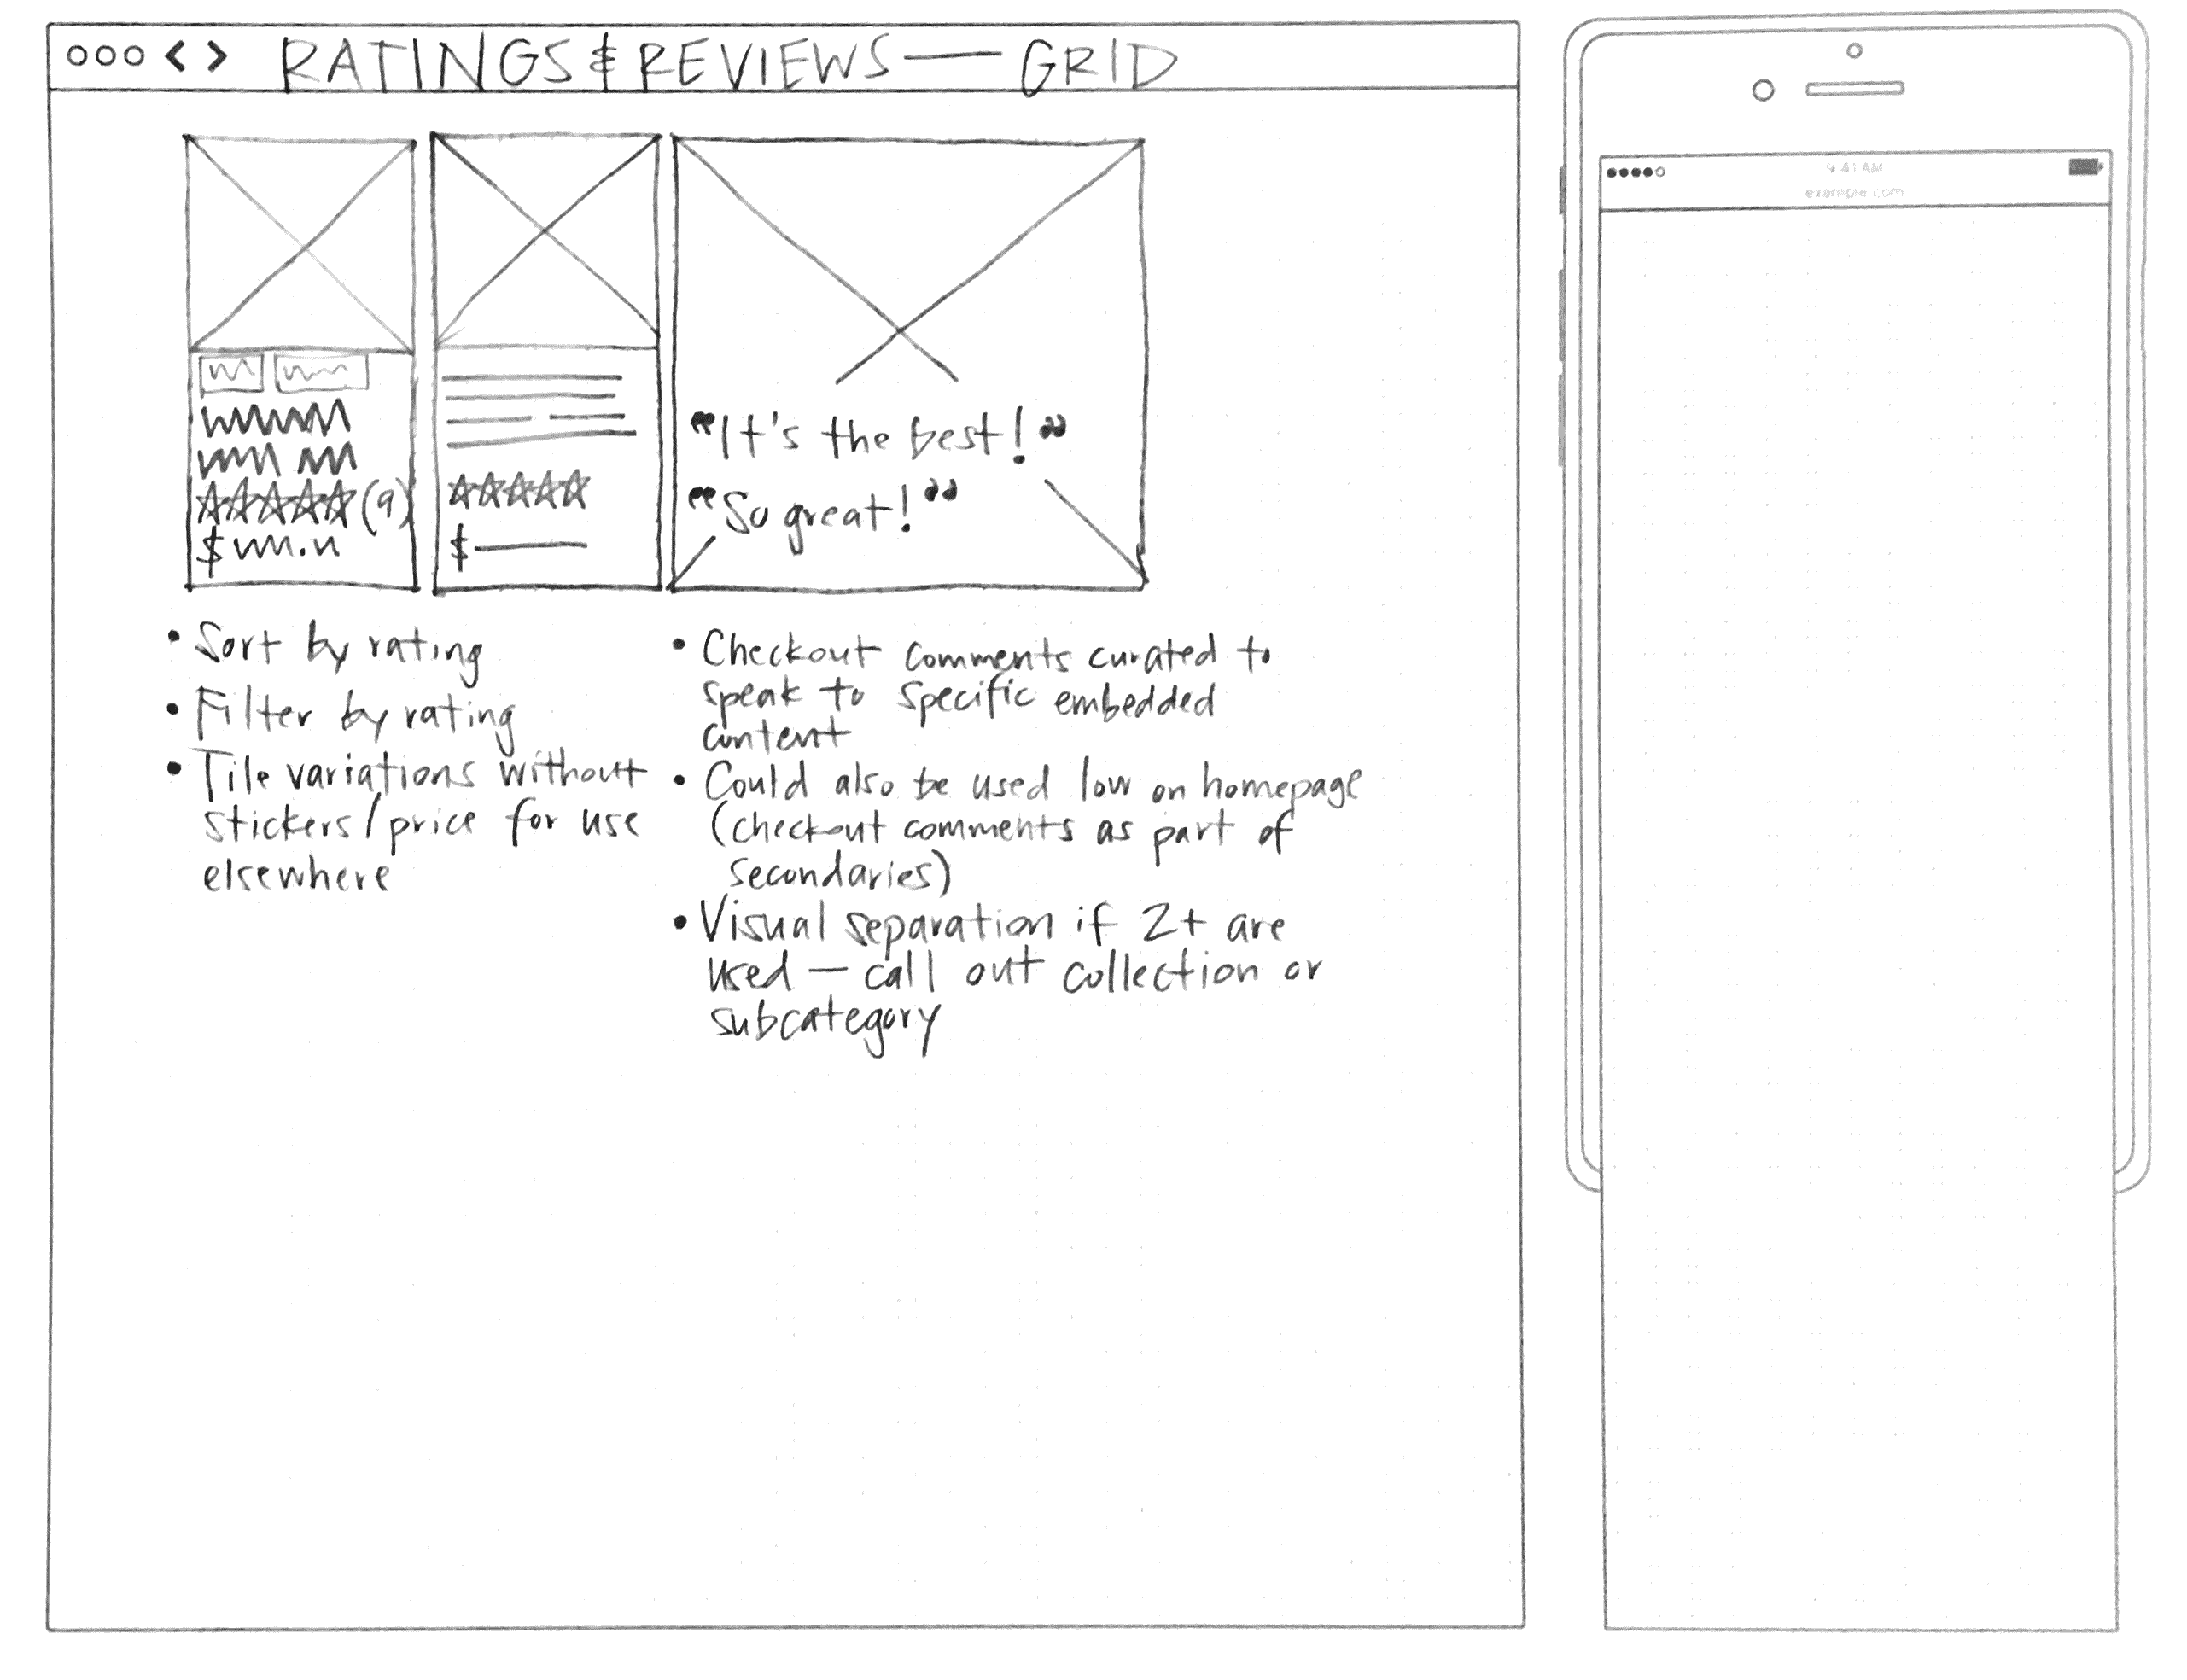 RATINGS & REVIEWS — GRID
9:41 AM
example.com
(9)
$
$
“It's the best!”
“So great!”
• Sort by rating
• Filter by rating
• Tile variations without
stickers/price for use
elsewhere
• Checkout comments curated to
speak to specific embedded
content
• Could also be used low on homepage
(checkout comments as part of
secondaries)
• Visual separation if 2+ are
used — call out collection or
subcategory